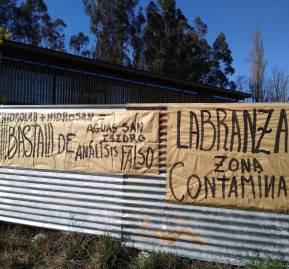 HIDROLAB + HIDROSAN
¡¡¡BASTA!!! DE
AGUAS SAN
ISIDRO
ANALISIS FALSO
LABRANZA
ZONA
CONTAMINA